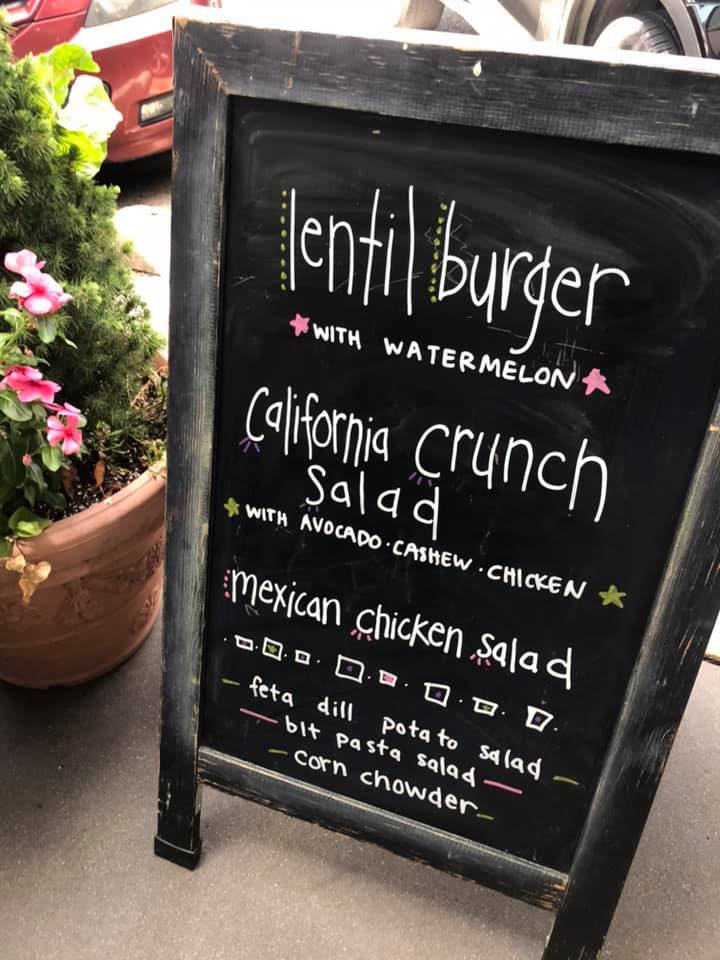 lentil burger
WITH WATERMELON
California Crunch
Salad
WITH AVOCADO · CASHEW · CHICKEN
mexican chicken salad
feta dill potato salad
blt pasta salad
corn chowder